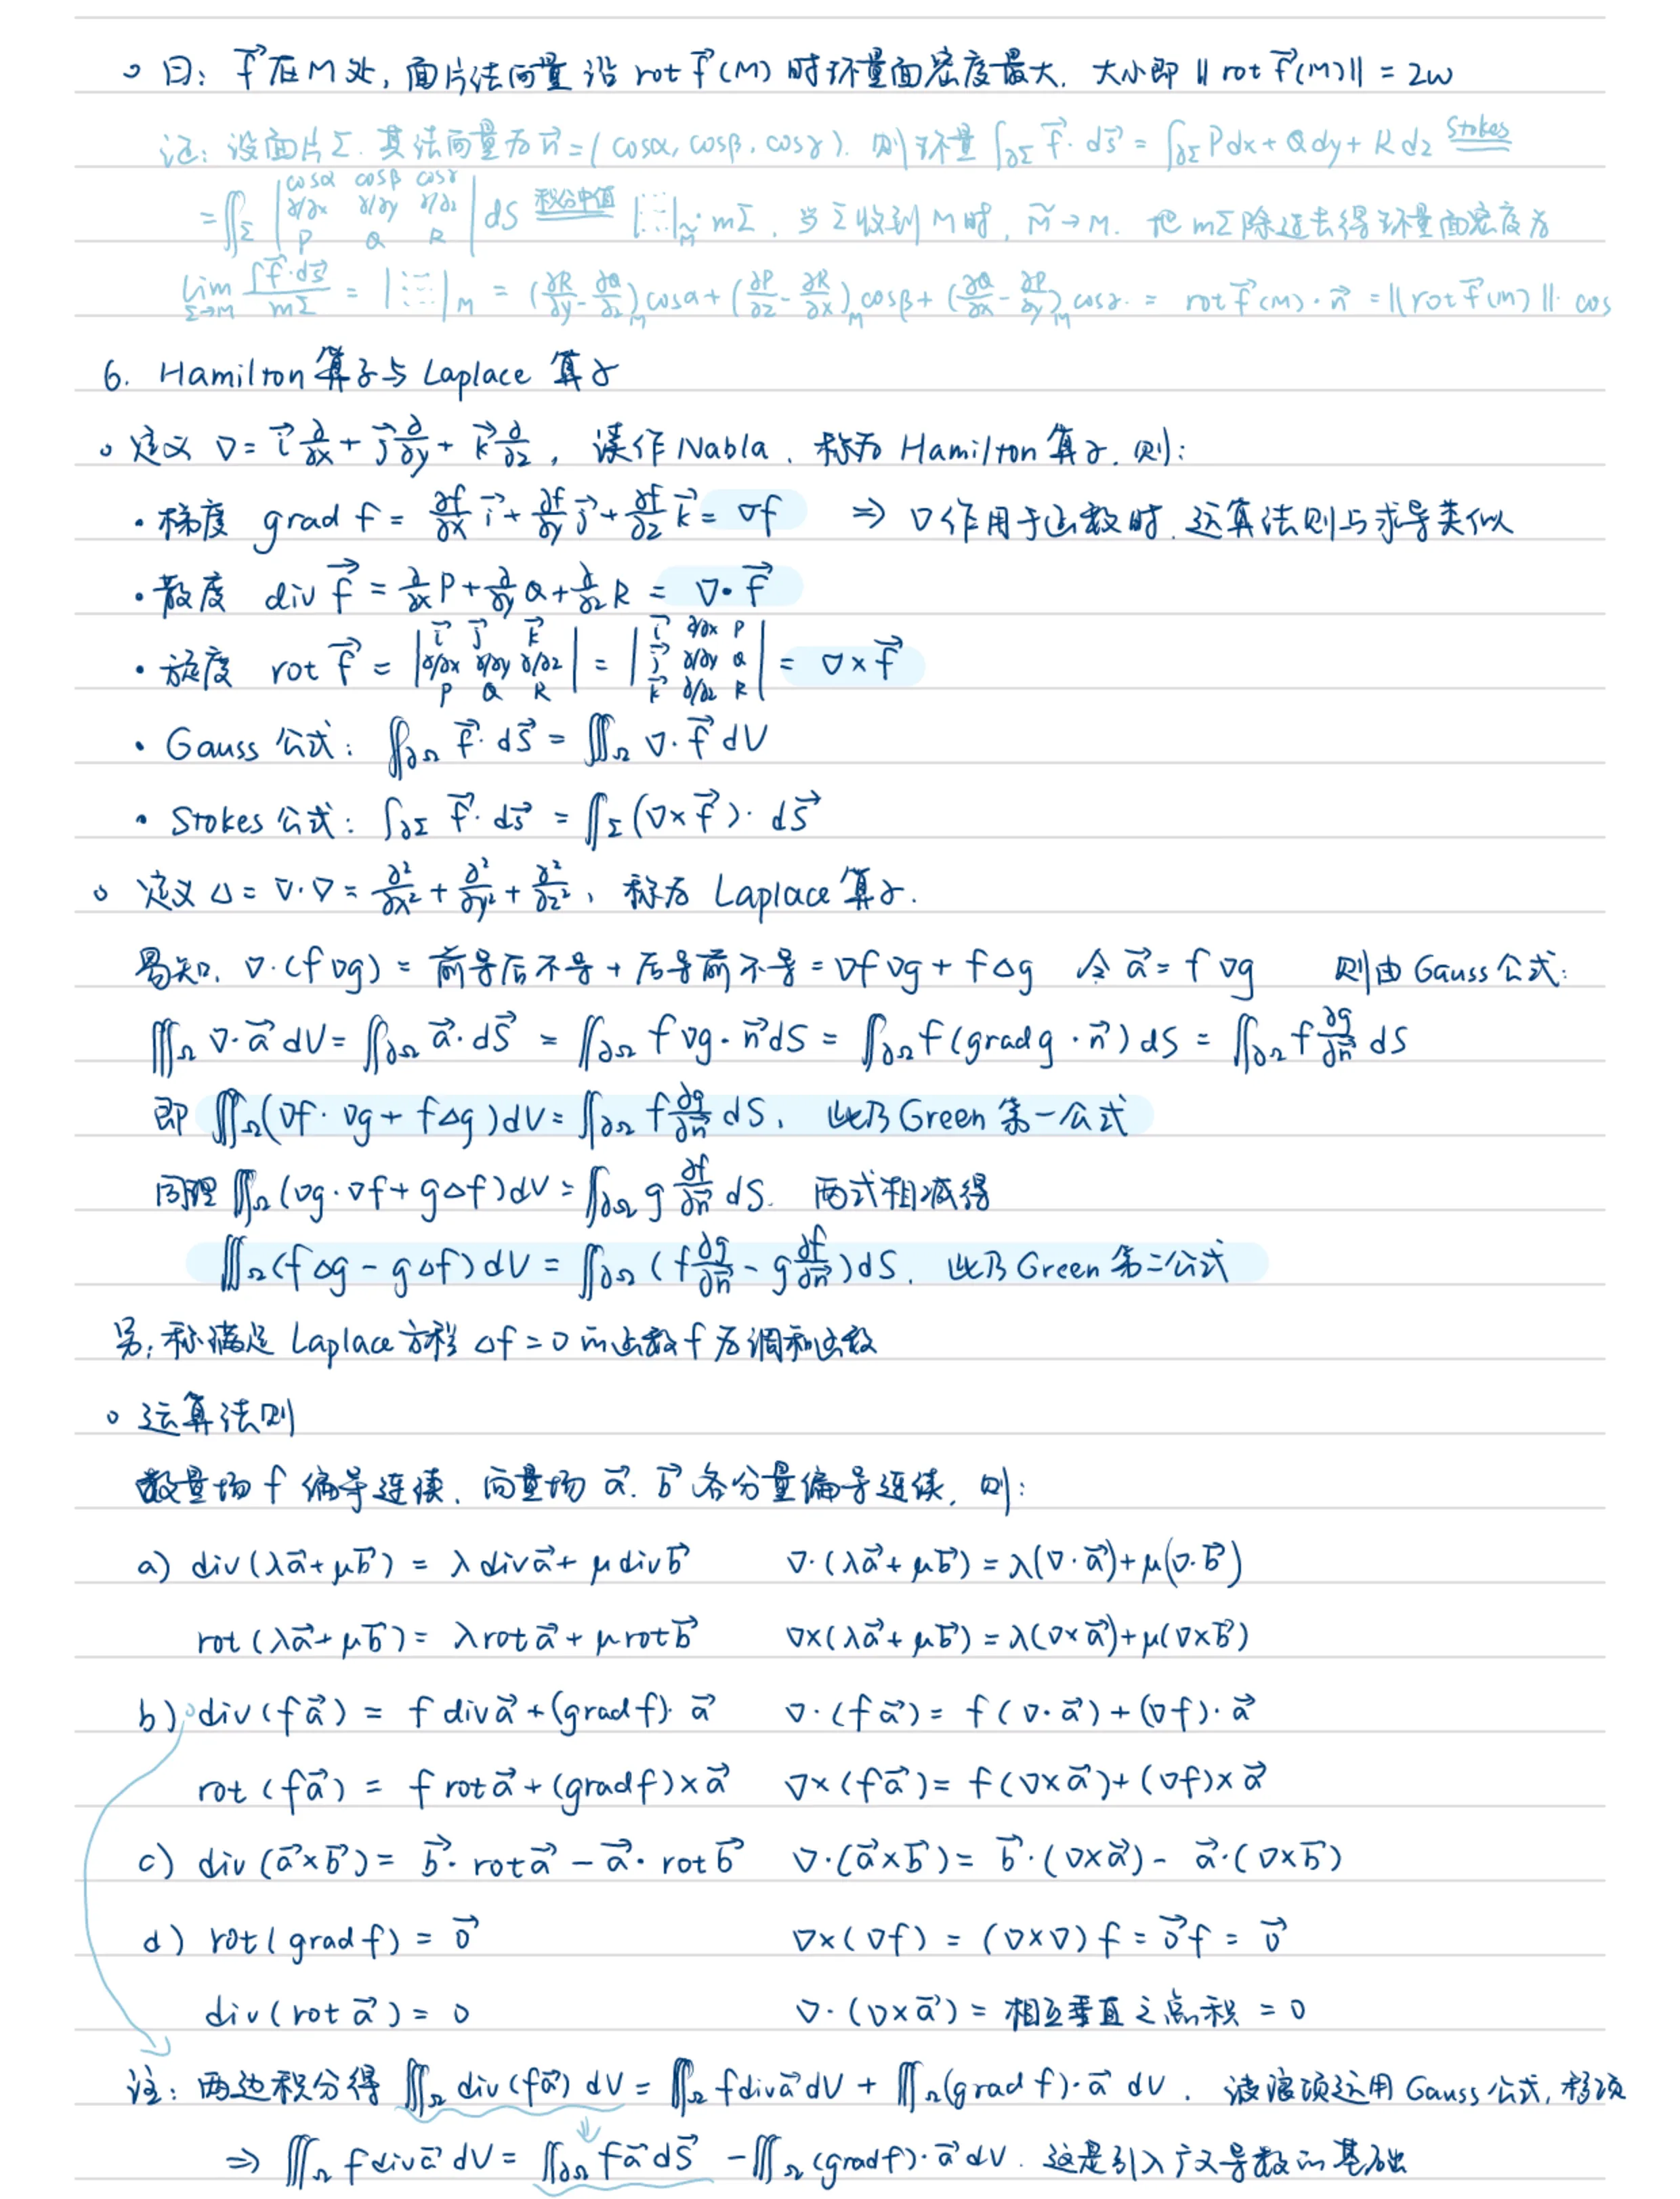 曰: $\vec{f}$ 在M处, 面片法向量沿 rot $\vec{f}$(M) 时环量面密度最大. 大小即 ‖rot $\vec{f}$(M)‖ = 2ω
证: 设面片Σ. 其法向量为 $\vec{n}$ = (cosα, cosβ, cosγ). 则环量 $\int_{\partial\Sigma} \vec{f}\cdot d\vec{s} = \int_{\partial\Sigma} Pdx+Qdy+Rdz$ $\overset{Stokes}{=}$
$=\iint_\Sigma \begin{vmatrix} \cos\alpha & \cos\beta & \cos\gamma \\ \partial/\partial x & \partial/\partial y & \partial/\partial z \\ P & Q & R \end{vmatrix} dS$ $\overset{积分中值}{=}$ $|\vdots\vdots\vdots|_{\tilde{M}}\cdot m\Sigma$, 当Σ收到M时, $\tilde{M}\to M$. 把mΣ除过去得环量面密度为
$\lim_{\Sigma\to M} \frac{\int \vec{f}\cdot d\vec{s}}{m\Sigma} = |\vdots\vdots\vdots|_M = (\frac{\partial R}{\partial y}-\frac{\partial Q}{\partial z})_M \cos\alpha + (\frac{\partial P}{\partial z}-\frac{\partial R}{\partial x})_M \cos\beta + (\frac{\partial Q}{\partial x}-\frac{\partial P}{\partial y})_M \cos\gamma. = rot\vec{f}(M)\cdot\vec{n} = ‖rot\vec{f}(M)‖\cdot cos$
6. Hamilton 算子与 Laplace 算子
定义 $\nabla = \vec{i}\frac{\partial}{\partial x}+\vec{j}\frac{\partial}{\partial y}+\vec{k}\frac{\partial}{\partial z}$, 读作 Nabla, 称为 Hamilton 算子. 则:
· 梯度 grad f = $\frac{\partial f}{\partial x}\vec{i}+\frac{\partial f}{\partial y}\vec{j}+\frac{\partial f}{\partial z}\vec{k} = \nabla f$ ⇒ ∇作用于函数时, 运算法则与求导类似
· 散度 div $\vec{f}$ = $\frac{\partial}{\partial x}P+\frac{\partial}{\partial y}Q+\frac{\partial}{\partial z}R = \nabla\cdot\vec{f}$
· 旋度 rot $\vec{f}$ = $\begin{vmatrix} \vec{i} & \vec{j} & \vec{k} \\ \partial/\partial x & \partial/\partial y & \partial/\partial z \\ P & Q & R \end{vmatrix} = \begin{vmatrix} \vec{i} & \partial/\partial x & P \\ \vec{j} & \partial/\partial y & Q \\ \vec{k} & \partial/\partial z & R \end{vmatrix} = \nabla\times\vec{f}$
· Gauss 公式: $\iint_{\partial\Omega} \vec{f}\cdot d\vec{S} = \iiint_\Omega \nabla\cdot\vec{f}\,dV$
· Stokes 公式: $\int_{\partial\Sigma} \vec{f}\cdot d\vec{s} = \iint_\Sigma (\nabla\times\vec{f})\cdot d\vec{S}$
定义 $\Delta = \nabla\cdot\nabla = \frac{\partial^2}{\partial x^2}+\frac{\partial^2}{\partial y^2}+\frac{\partial^2}{\partial z^2}$, 称为 Laplace 算子.
易知, ∇·(f∇g) = 前导后不导 + 后导前不导 = ∇f∇g + fΔg 令 $\vec{a}$ = f∇g 则由 Gauss 公式:
$\iiint_\Omega \nabla\cdot\vec{a}\,dV = \iint_{\partial\Omega} \vec{a}\cdot d\vec{S} = \iint_{\partial\Omega} f\nabla g\cdot\vec{n}dS = \iint_{\partial\Omega} f(grad g\cdot\vec{n})dS = \iint_{\partial\Omega} f\frac{\partial g}{\partial\vec{n}}dS$
即 $\iiint_\Omega(\nabla f\cdot\nabla g+f\Delta g)dV = \iint_{\partial\Omega} f\frac{\partial g}{\partial\vec{n}}dS$, 此乃Green第一公式
同理 $\iiint_\Omega(\nabla g\cdot\nabla f+g\Delta f)dV = \iint_{\partial\Omega} g\frac{\partial f}{\partial\vec{n}}dS$. 两式相减得
$\iiint_\Omega(f\Delta g-g\Delta f)dV = \iint_{\partial\Omega}(f\frac{\partial g}{\partial\vec{n}}-g\frac{\partial f}{\partial\vec{n}})dS$. 此乃Green第二公式
另: 称满足 Laplace方程 Δf=0 的函数 f 为调和函数
运算法则
数量场 f 偏导连续, 向量场 $\vec{a}$, $\vec{b}$ 各分量偏导连续, 则:
a) div(λ$\vec{a}$+μ$\vec{b}$) = λdiv$\vec{a}$+μdiv$\vec{b}$ ∇·(λ$\vec{a}$+μ$\vec{b}$) = λ(∇·$\vec{a}$)+μ(∇·$\vec{b}$)
rot(λ$\vec{a}$+μ$\vec{b}$) = λrot$\vec{a}$+μrot$\vec{b}$ ∇×(λ$\vec{a}$+μ$\vec{b}$) = λ(∇×$\vec{a}$)+μ(∇×$\vec{b}$)
b) div(f$\vec{a}$) = f div$\vec{a}$+(grad f)·$\vec{a}$ ∇·(f$\vec{a}$) = f(∇·$\vec{a}$)+(∇f)·$\vec{a}$
rot(f$\vec{a}$) = f rot$\vec{a}$+(grad f)×$\vec{a}$ ∇×(f$\vec{a}$) = f(∇×$\vec{a}$)+(∇f)×$\vec{a}$
c) div($\vec{a}$×$\vec{b}$) = $\vec{b}$·rot$\vec{a}$−$\vec{a}$·rot$\vec{b}$ ∇·($\vec{a}$×$\vec{b}$) = $\vec{b}$·(∇×$\vec{a}$)−$\vec{a}$·(∇×$\vec{b}$)
d) rot(grad f) = $\vec{0}$ ∇×(∇f) = (∇×∇)f = $\vec{0}$f = $\vec{0}$
div(rot $\vec{a}$) = 0 ∇·(∇×$\vec{a}$) = 相互垂直之点积 = 0
注: 两边积分得 $\iiint_\Omega div(f\vec{a})\,dV = \iiint_\Omega fdiv\vec{a}\,dV + \iiint_\Omega(grad f)\cdot\vec{a}\,dV$. 波浪项运用 Gauss 公式, 移项
⇒ $\iiint_\Omega fdiv\vec{a}\,dV = \iint_{\partial\Omega} f\vec{a}\,d\vec{S} - \iiint_\Omega(grad f)\cdot\vec{a}\,dV$. 这是引入广义导数的基础